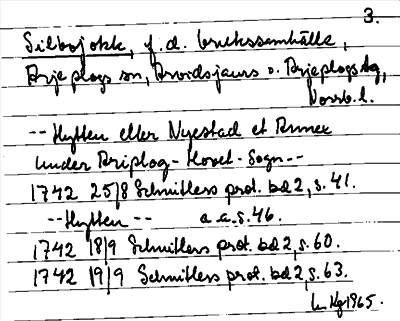 3.
Silbojokk, f.d. brukssamhälle,
Arjeplogs sn, Arvidsjaurs o. Arjeplogs tg,
Norrb. l.
-- Hytten eller Nyestad et Annex
under Ariplog - Hovet - Sogn --
1742 25/8 Schnitlers prot. bd 2, s. 41.
-- Hytten -- a.a.s. 46.
1742 18/9 Schnitlers prot. bd 2, s. 60.
1742 19/9 Schnitlers prot. bd 2, s. 63.
1965.